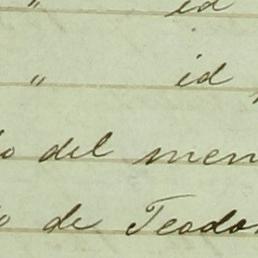 " id
" id
o del men
o de Teodo